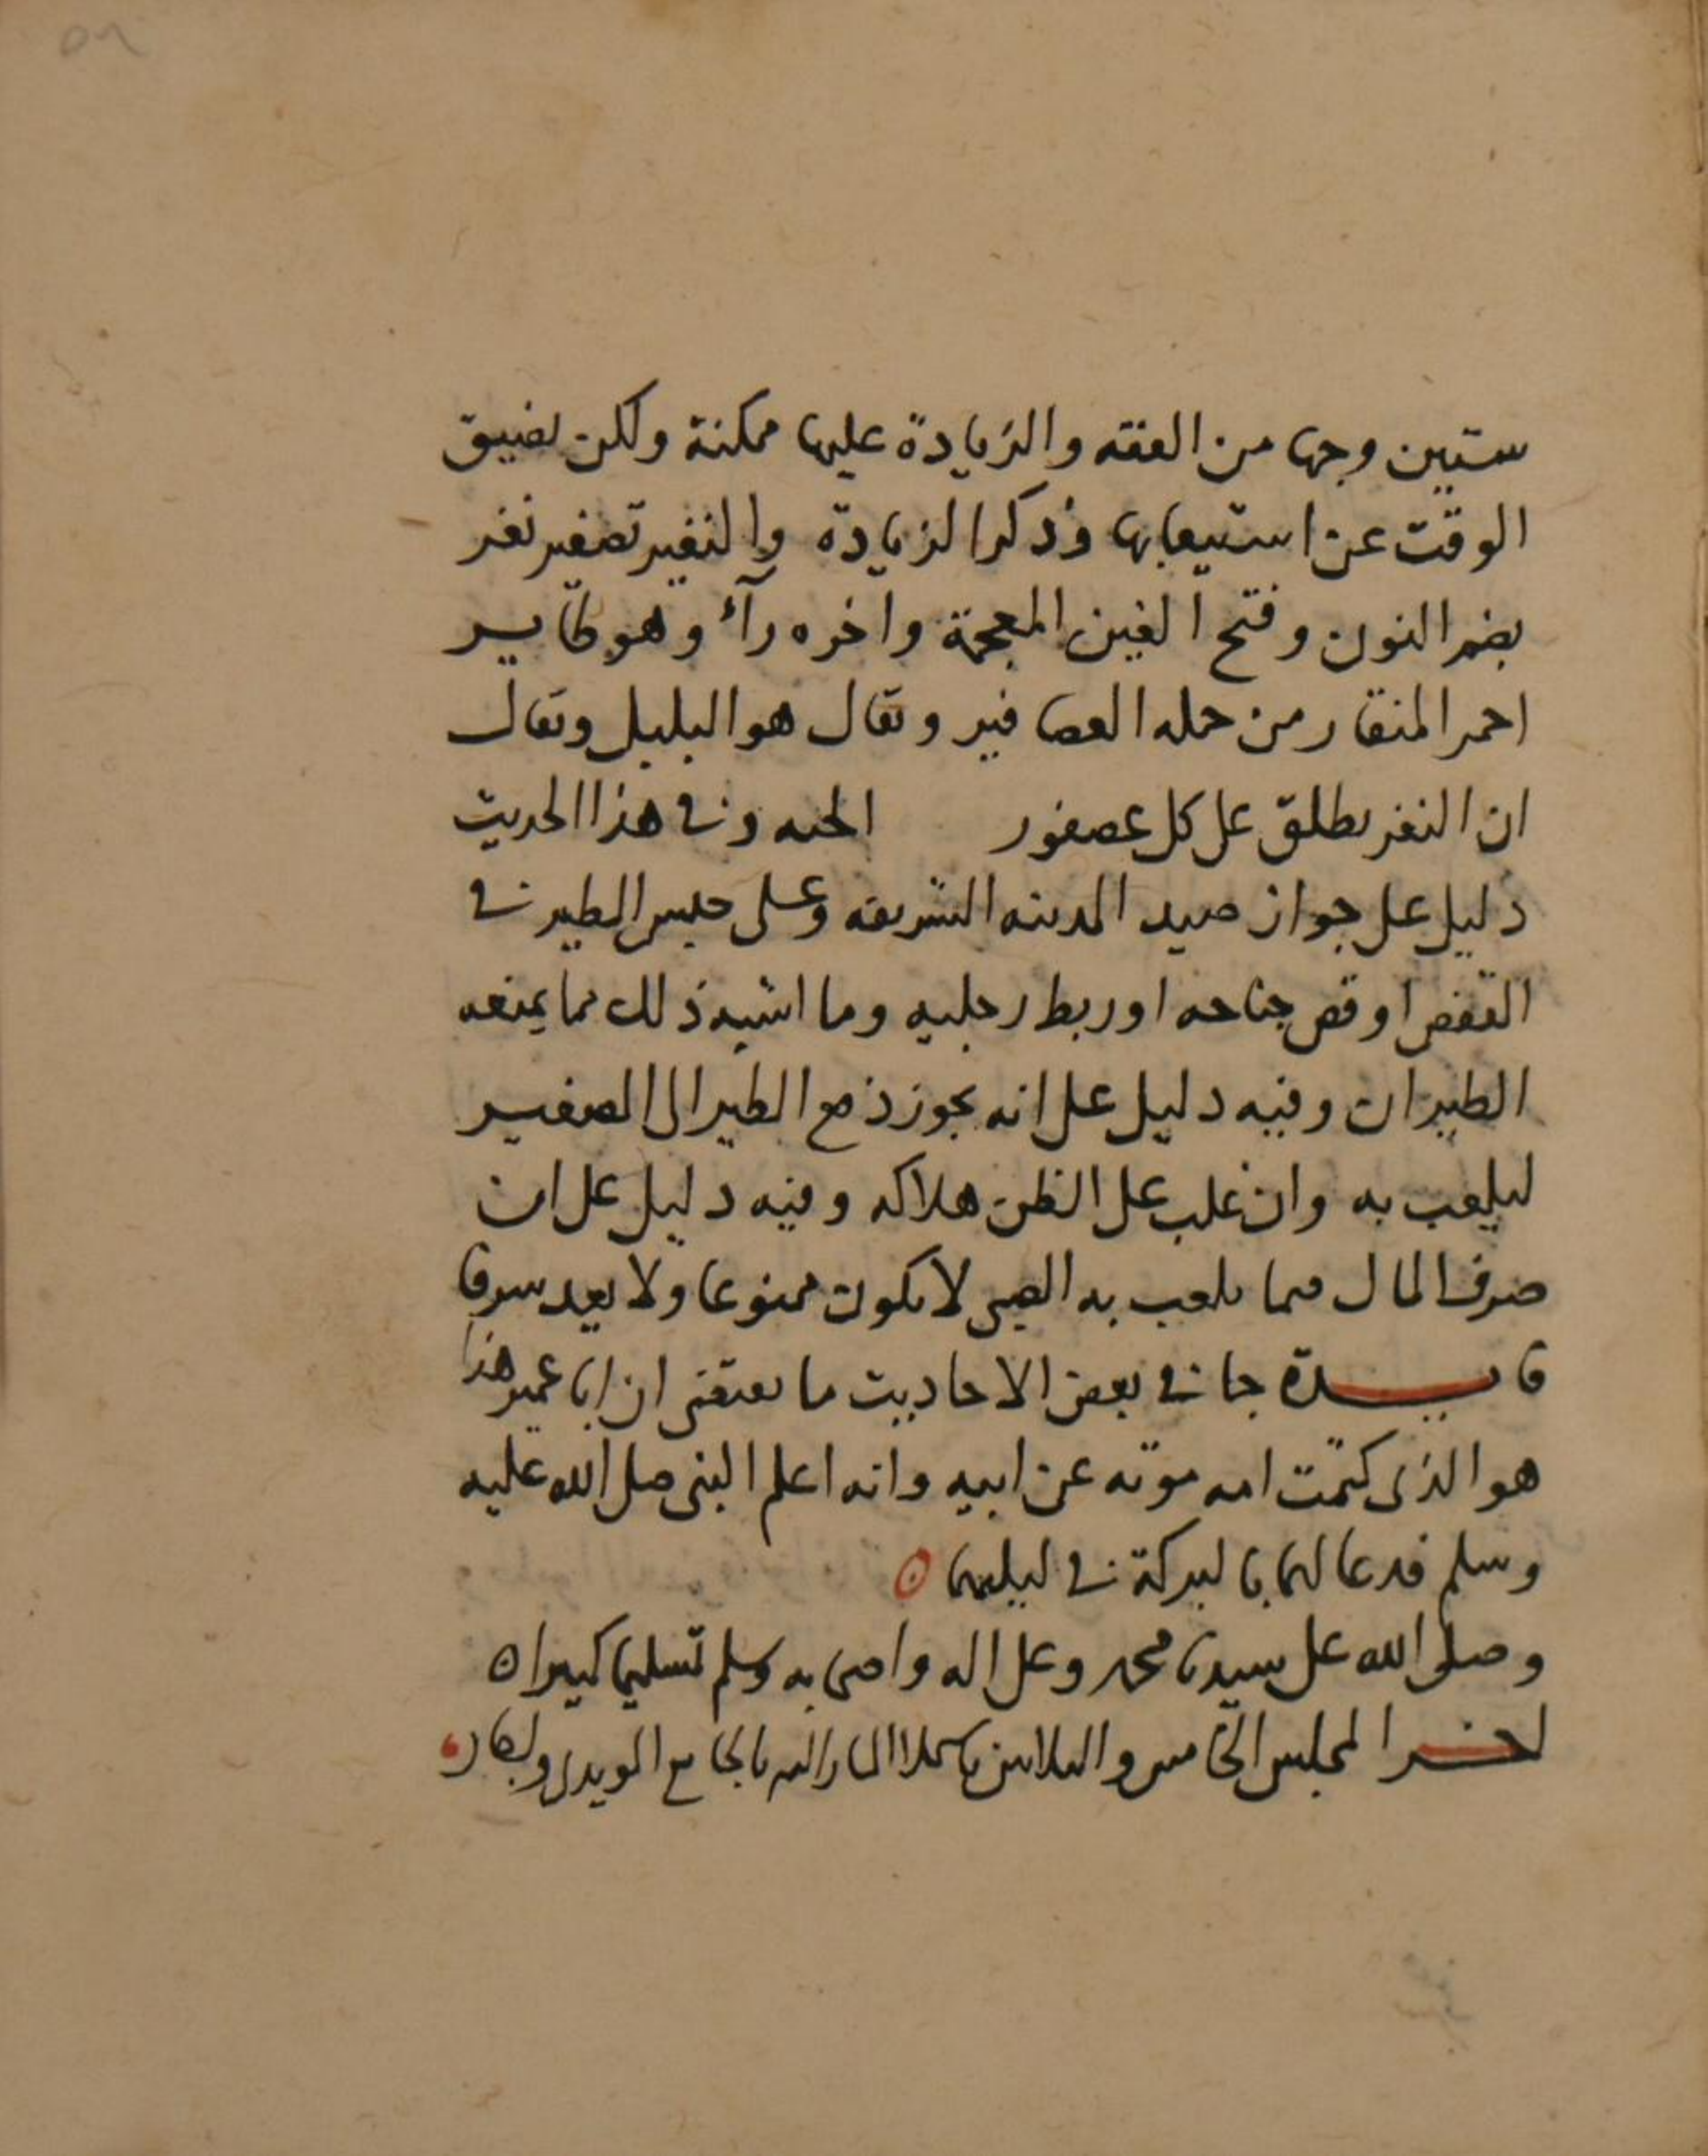 ٥٦
ستين وجها من الفقه والزيادة عليها ممكنة ولكن يضيق
الوقت عن استيعابها وذكر الزيادة والنغير تصغير نغر
بضم النون وفتح الغين المعجمة واخره رآء وهو طاير
احمر المنقار من جمله العصافير ويقال هو البلبل ويقال
ان النغر يطلق على كل عصفور الجنه وفي هذا الحديث
دليل على جواز صيد المدينه الشريفه وعلى حبس الطير في
القفص او قص جناحه او ربط رجليه وما اشبه ذلك مما يمنعه
الطيران وفيه دليل على انه يجوز دفع الطير الى الصغير
ليلعب به وان غلب على الظن هلاكه وفيه دليل على ان
صرف المال فيما يلعب به الصبي لا يكون ممنوعا ولا يعد سرفا
فايدة جا في بعض الاحاديث ما يقتضي ان ابا عمير هذا
هو الذي كتمت امه موته عن ابيه وانه اعلم النبي صلى الله عليه
وسلم فدعا لهما بالبركة في ليلتهما
وصلى الله على سيدنا محمد وعلى اله واصحابه وسلم تسليما كثيرا
اخر المجلس الخامس والثلاثين بالجامع المويدي